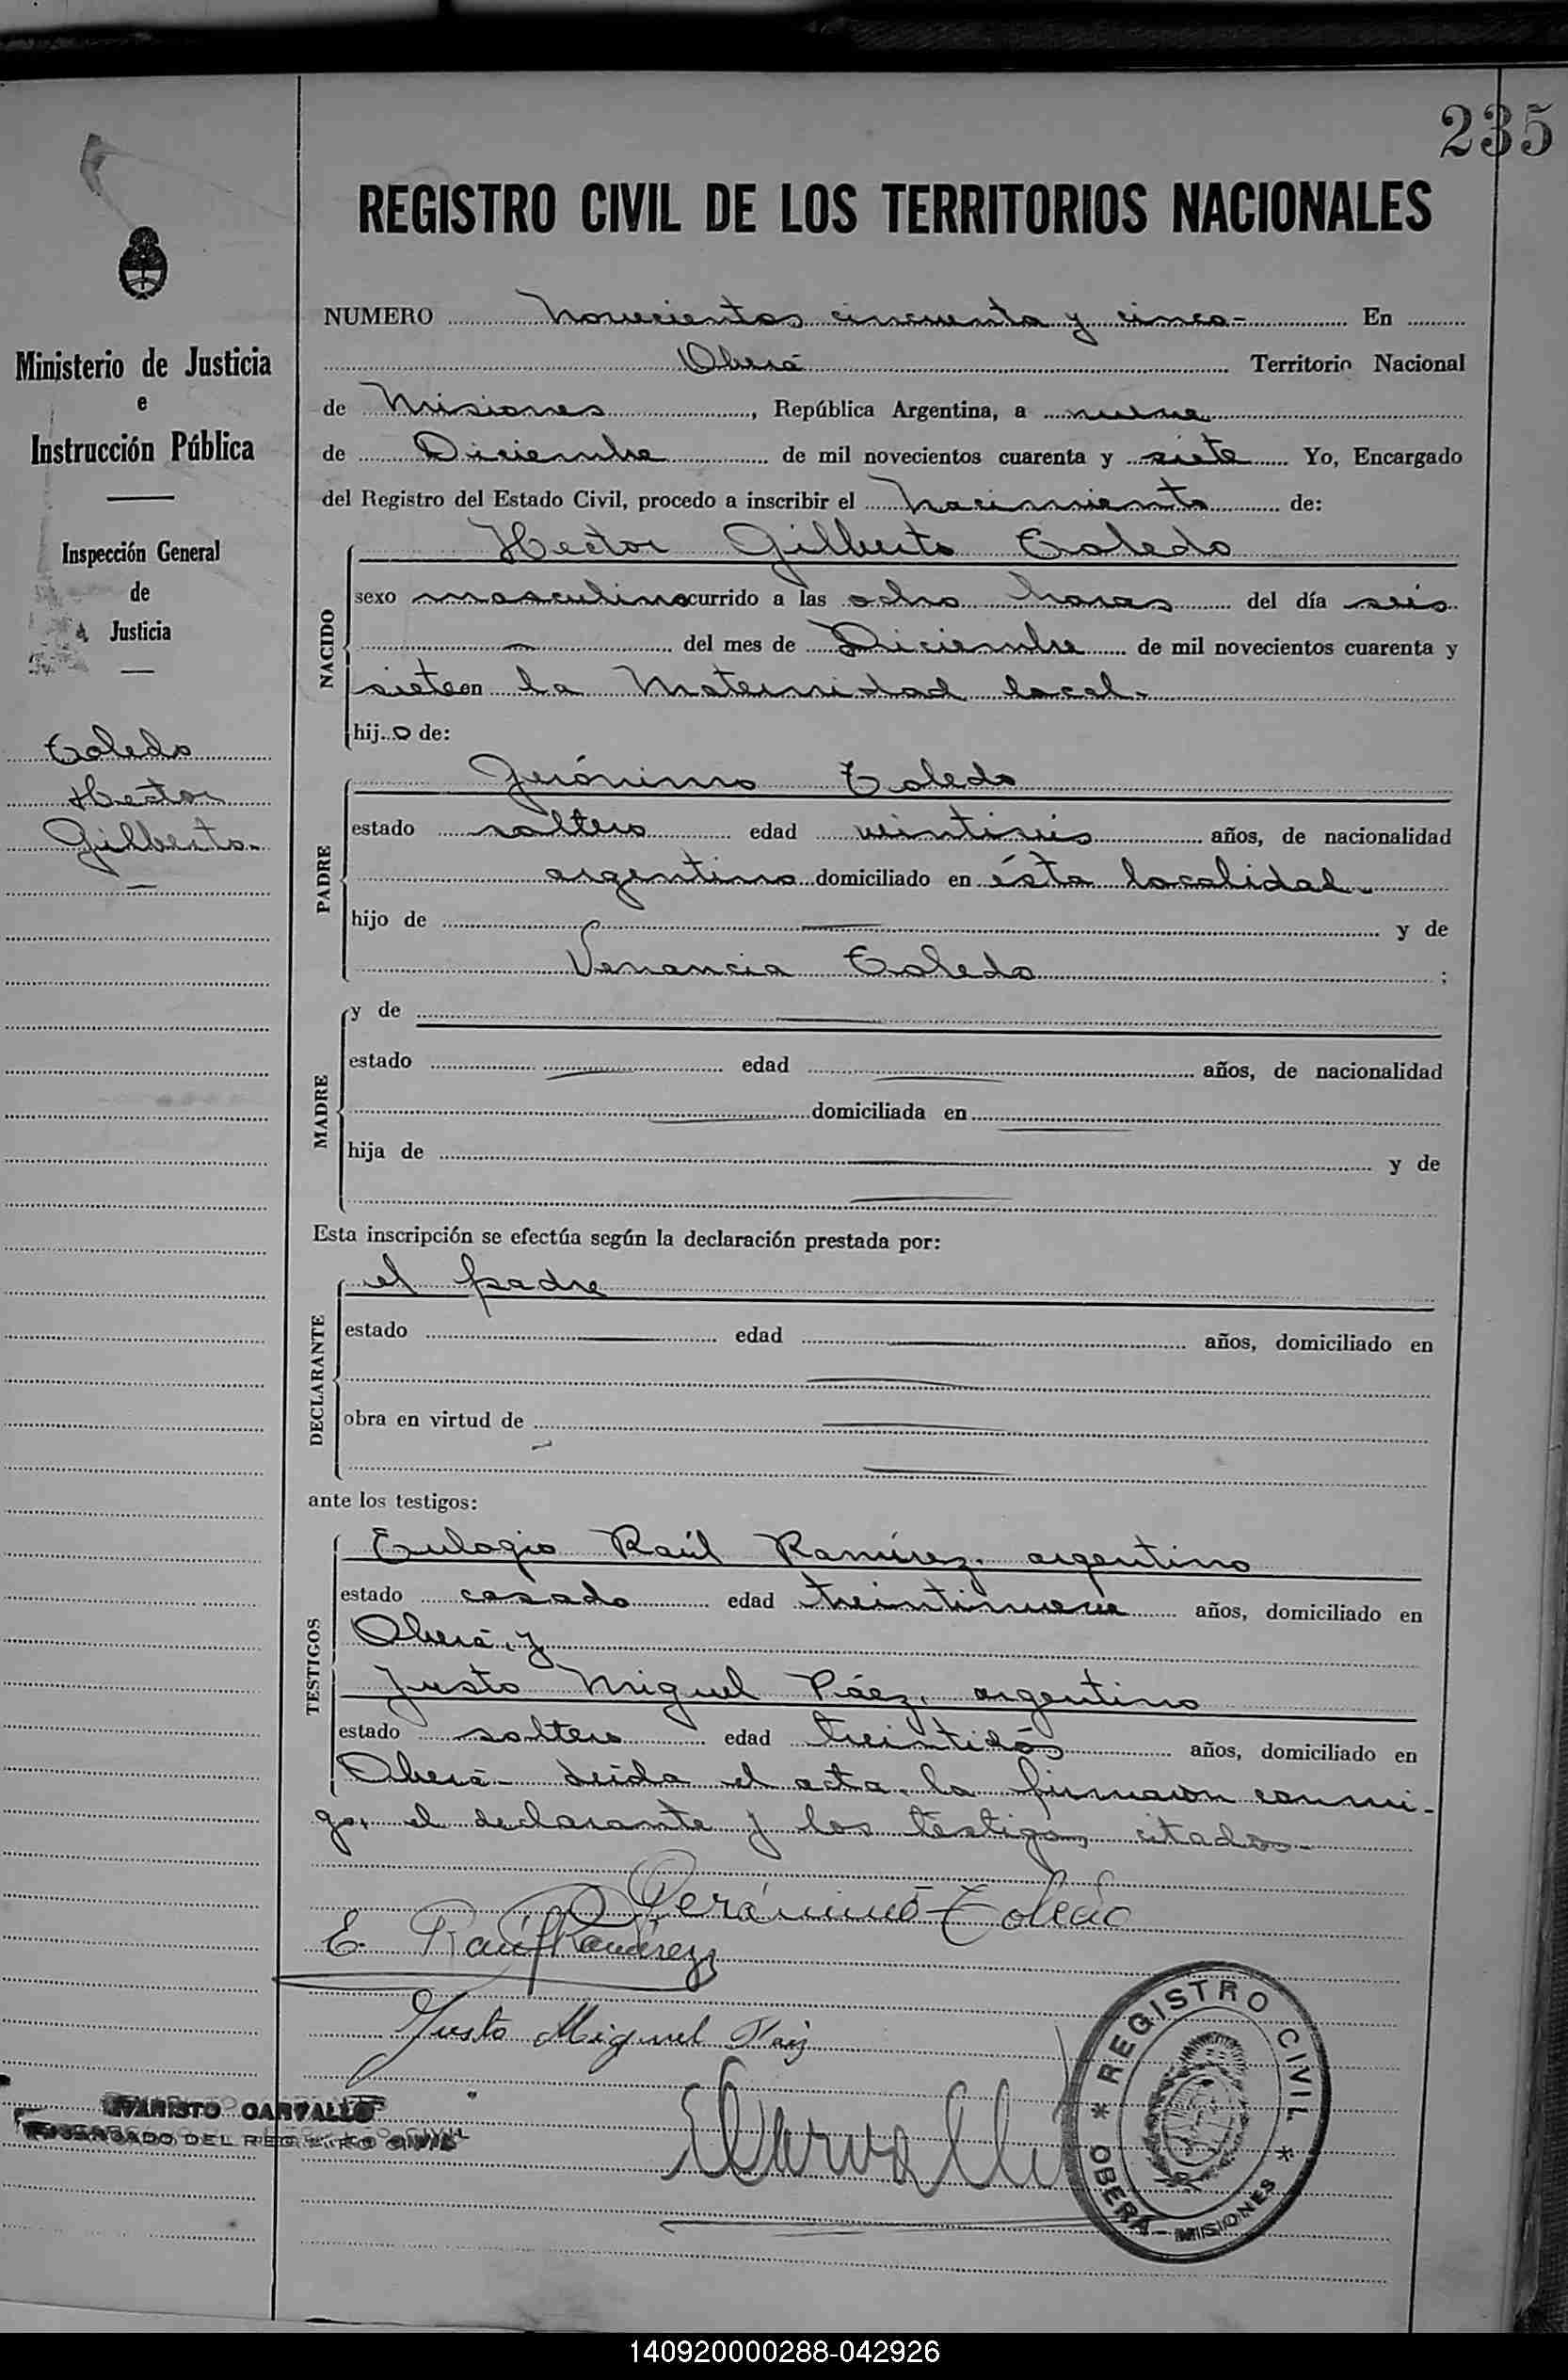 235
REGISTRO CIVIL DE LOS TERRITORIOS NACIONALES
Ministerio de Justicia
e
Instrucción Pública
Inspección General
de
Justicia
Toledo
Hector
Gilberto-
NUMERO novecientos cincuenta y cinco- En
Oberá Territorio Nacional
de Misiones, República Argentina, a nueve
de Diciembre de mil novecientos cuarenta y siete Yo, Encargado
del Registro del Estado Civil, procedo a inscribir el nacimiento de:
NACIDO
Hector Gilberto Toledo
sexo masculino ocurrido a las ocho horas del día seis
del mes de Diciembre de mil novecientos cuarenta y
siete en la Maternidad local-
hijo de:
PADRE
Jerónimo Toledo
estado soltero edad veintiséis años, de nacionalidad
argentino domiciliado en ésta localidad-
hijo de y de
Venancia Toledo ;
MADRE
y de
estado edad años, de nacionalidad
domiciliada en
hija de y de
Esta inscripción se efectúa según la declaración prestada por:
DECLARANTE
el padre
estado edad años, domiciliado en
obra en virtud de
ante los testigos:
TESTIGOS
Eulogio Raúl Ramírez, argentino
estado casado edad treintinueve años, domiciliado en
Oberá, y
Justo Miguel Páez, argentino
estado soltero edad treintidós años, domiciliado en
Oberá- Leída el acta, la firmaron conmi-
go, el declarante y los testigos citados-
Gerónimo Toledo
E. Raúl Ramírez
Justo Miguel Páez
ECarvallo
EVARISTO CARVALLO
ENCARGADO DEL REGISTRO CIVIL
REGISTRO CIVIL
OBERÁ - MISIONES
140920000288-042926